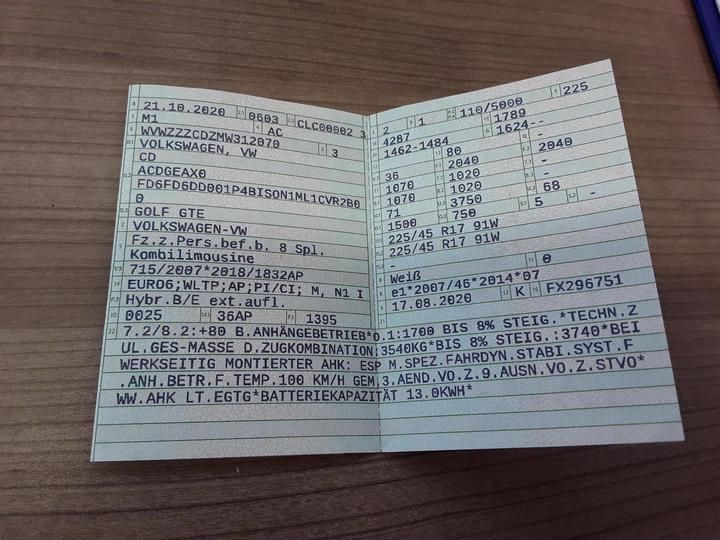 21.10.2020 0603 CLC00002 3
M1 AC
WVWZZZCDZMW312070 3
VOLKSWAGEN, VW
CD
ACDGEAX0
FD6FD6DD001P4BISON1ML1CVR2B0
0
GOLF GTE
VOLKSWAGEN-VW
Fz.z.Pers.bef.b. 8 Spl.
Kombilimousine
715/2007*2018/1832AP
EURO6;WLTP;AP;PI/CI; M, N1 I
Hybr.B/E ext.aufl.
0025 36AP 1395
2 1 110/5000 225
4287 1789
1462-1484 1624--
-
36 80 2040
1070 2040 -
1070 1020 -
71 1020 68
1500 3750 5 -
750
225/45 R17 91W
225/45 R17 91W
-
Weiß 0
e1*2007/46*2014*07
17.08.2020 K FX296751
7.2/8.2:+80 B.ANHÄNGEBETRIEB*O.1:1700 BIS 8% STEIG.*TECHN.Z
UL.GES-MASSE D.ZUGKOMBINATION:3540KG*BIS 8% STEIG.:3740*BEI
WERKSEITIG MONTIERTER AHK: ESP M.SPEZ.FAHRDYN.STABI.SYST.F
.ANH.BETR.F.TEMP.100 KM/H GEM.3.AEND.VO.Z.9.AUSN.VO.Z.STVO*
WW.AHK LT.EGTG*BATTERIEKAPAZITÄT 13.0KWH*